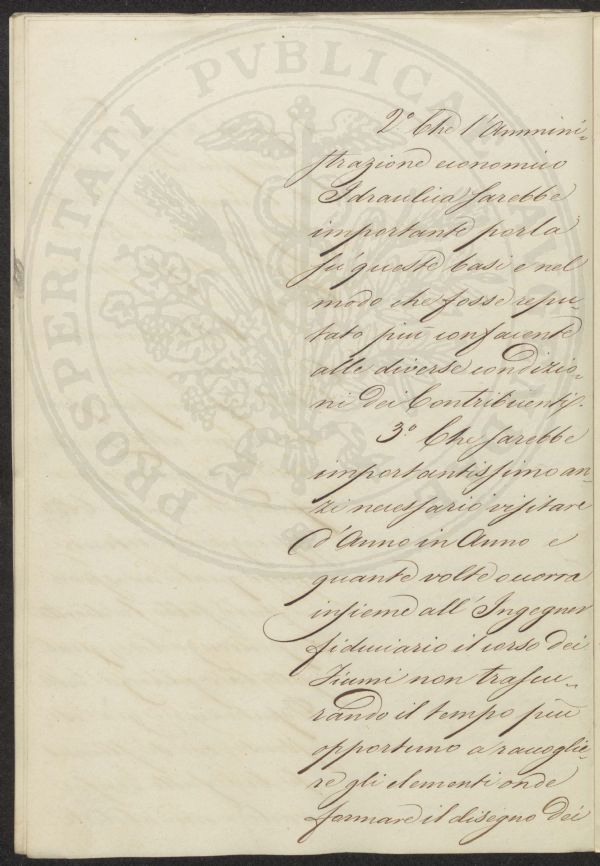 2.º Che l'Ammini-
strazione economico
Idraulica sarebbe
importante porla
su queste basi e nel
modo che fosse repu-
tato più confacente
alle diverse condizio-
ni dei Contribuenti.
3.º Che sarebbe
importantissimo an-
zi necessario visitare
d'Anno in Anno e
quante volte occorra
insieme all'Ingegner
fiduciario il corso dei
Fiumi non trascu-
rando il tempo più
opportuno a raccoglie-
re gli elementi onde
formare il disegno dei
PROSPERITATI PVBLICAE